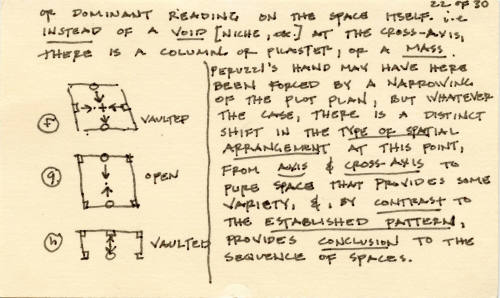 22 OF 30
OR DOMINANT READING ON THE SPACE ITSELF. i.e
INSTEAD OF A VOID [NICHE, etc.] AT THE CROSS-AXIS,
THERE IS A COLUMN OR PILASTER, OR A MASS.
f VAULTED
g OPEN
h VAULTED
PERUZZI'S HAND MAY HAVE HERE
BEEN FORCED BY A NARROWING
OF THE PLOT PLAN, BUT WHATEVER
THE CASE, THERE IS A DISTINCT
SHIFT IN THE TYPE OF SPATIAL
ARRANGEMENT AT THIS POINT,
FROM AXIS & CROSS-AXIS TO
PURE SPACE THAT PROVIDES SOME
VARIETY, &, BY CONTRAST TO
THE ESTABLISHED PATTERN,
PROVIDES CONCLUSION TO THE
SEQUENCE OF SPACES.